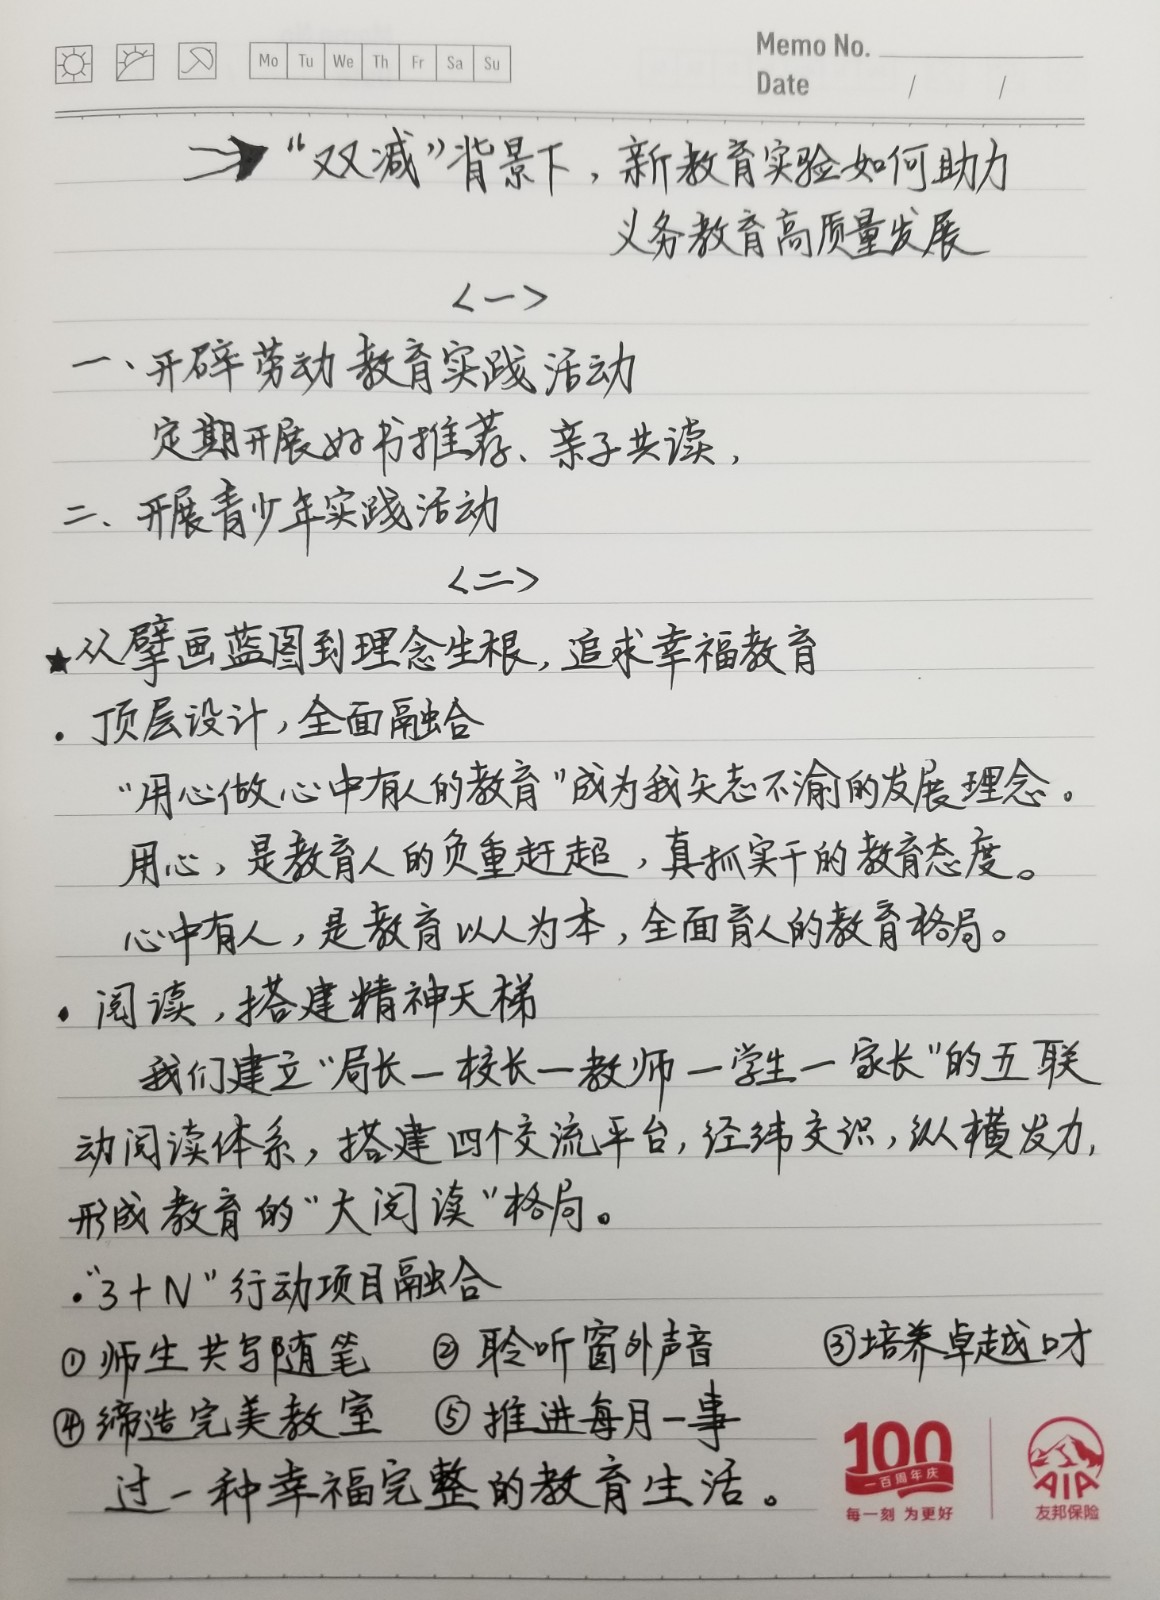 Mo Tu We Th Fr Sa Su
Memo No.
Date / /
“双减”背景下，新教育实验如何助力
义务教育高质量发展
<一>
一、开辟劳动教育实践活动
定期开展好书推荐、亲子共读，
二、开展青少年实践活动
<二>
★从擘画蓝图到理念生根，追求幸福教育
·顶层设计，全面融合
“用心做心中有人的教育”成为我矢志不渝的发展理念。
用心，是教育人的负重赶超，真抓实干的教育态度。
心中有人，是教育以人为本，全面育人的教育格局。
·阅读，搭建精神天梯
我们建立“局长一校长一教师一学生一家长”的五联
动阅读体系，搭建四个交流平台，经纬交识，纵横发力，
形成教育的“大阅读”格局。
·“3+N”行动项目融合
①师生共写随笔 ②聆听窗外声音 ③培养卓越口才
④缔造完美教室 ⑤推进每月一事
过一种幸福完整的教育生活。
100
一百周年庆
每一刻 为更好
AIA
友邦保险